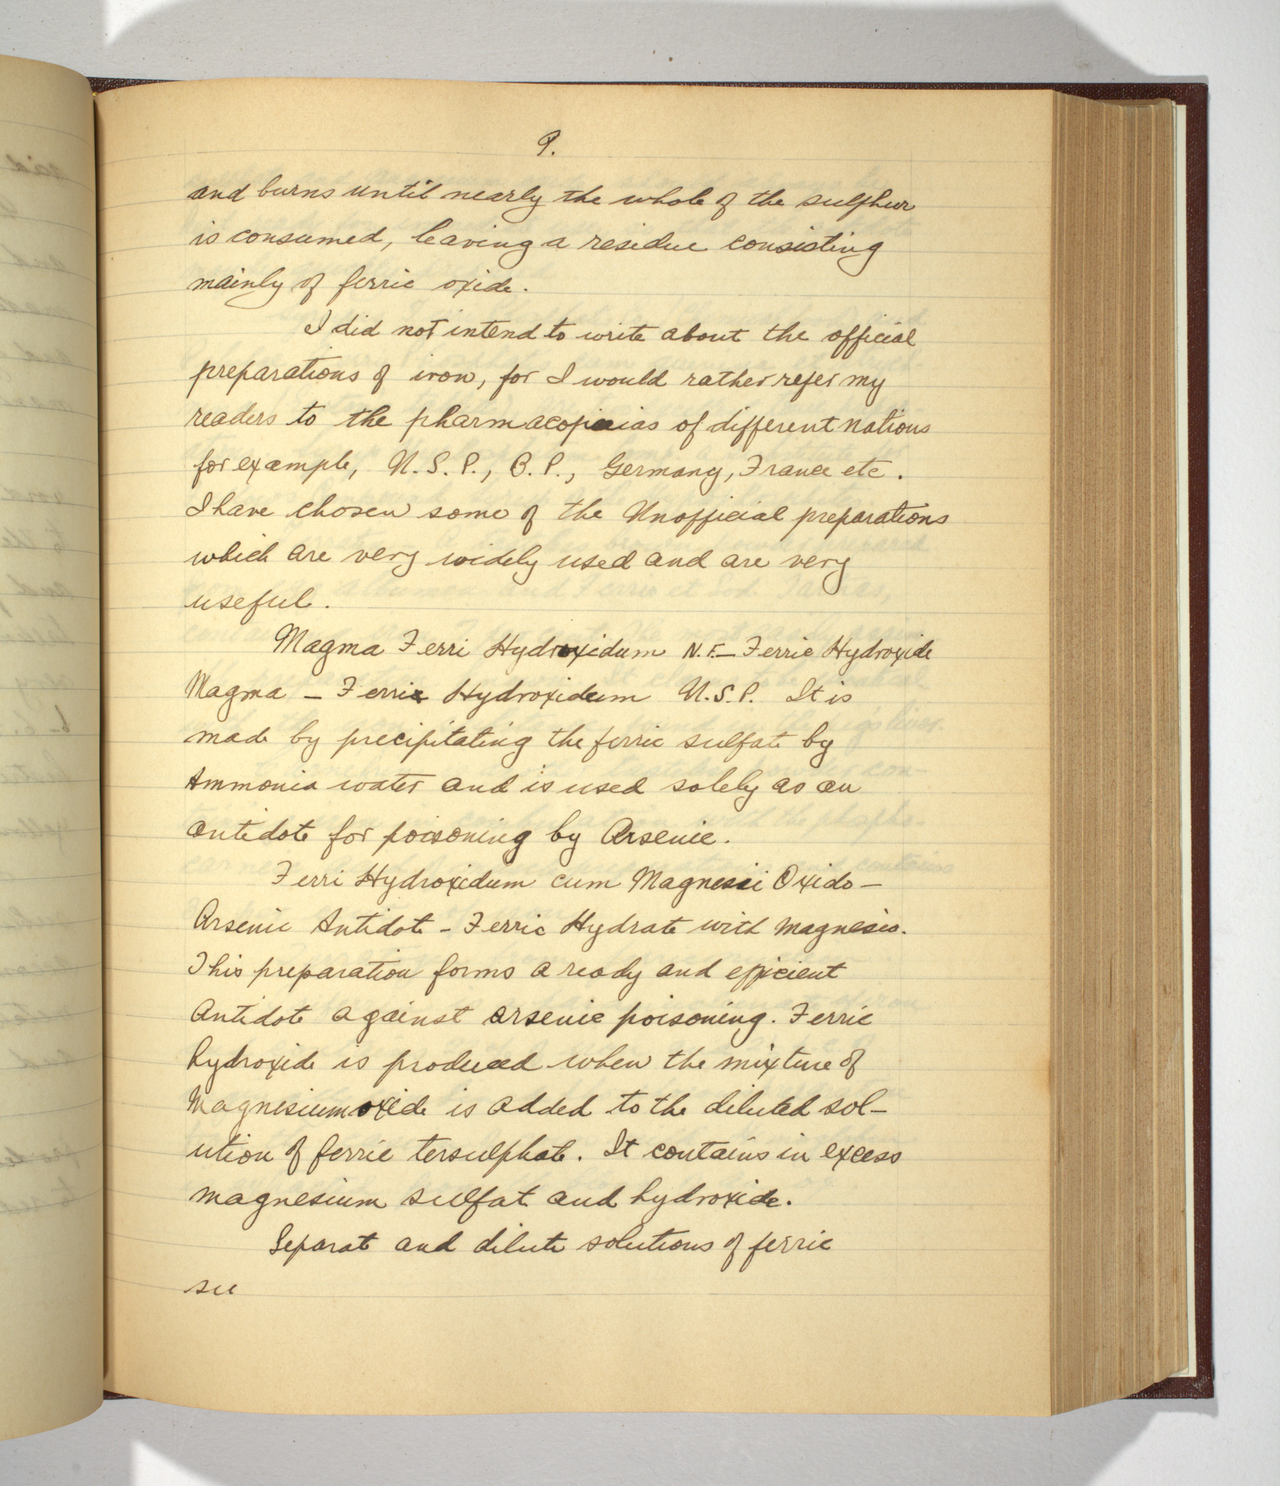 9.
and burns until nearly the whole of the sulphur
is consumed, leaving a residue consisting
mainly of ferric oxide.
I did not intend to write about the official
preparations of iron, for I would rather refer my
readers to the pharmacopieias of different nations
for example, U.S.P., B.P., Germany, France etc.
I have chosen some of the Unofficial preparations
which are very widely used and are very
useful.
Magma Ferri Hydroxidum N.F. — Ferric Hydroxide
Magma — Ferric Hydroxidum U.S.P. It is
made by precipitating the ferric sulfate by
Ammonia water and is used solely as an
antidote for poisoning by Arsenic.
Ferri Hydroxidum cum Magnesii Oxido —
Arsenic Antidote — Ferric Hydrate with magnesia.
This preparation forms a ready and efficient
Antidote against arsenic poisoning. Ferric
hydroxide is produced when the mixture of
Magnesium oxide is added to the diluted sol-
ution of ferric tersulphate. It contains in excess
magnesium sulfat and hydroxide.
Separate and dilute solutions of ferric
su